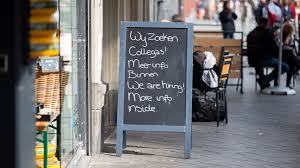 Wy Zoeken
Collegas!
Meer info
Binnen
We are hiring!
More info
inside.